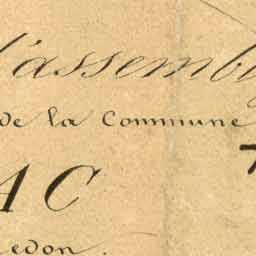 l'assemb
de la Commune
AC
edon.